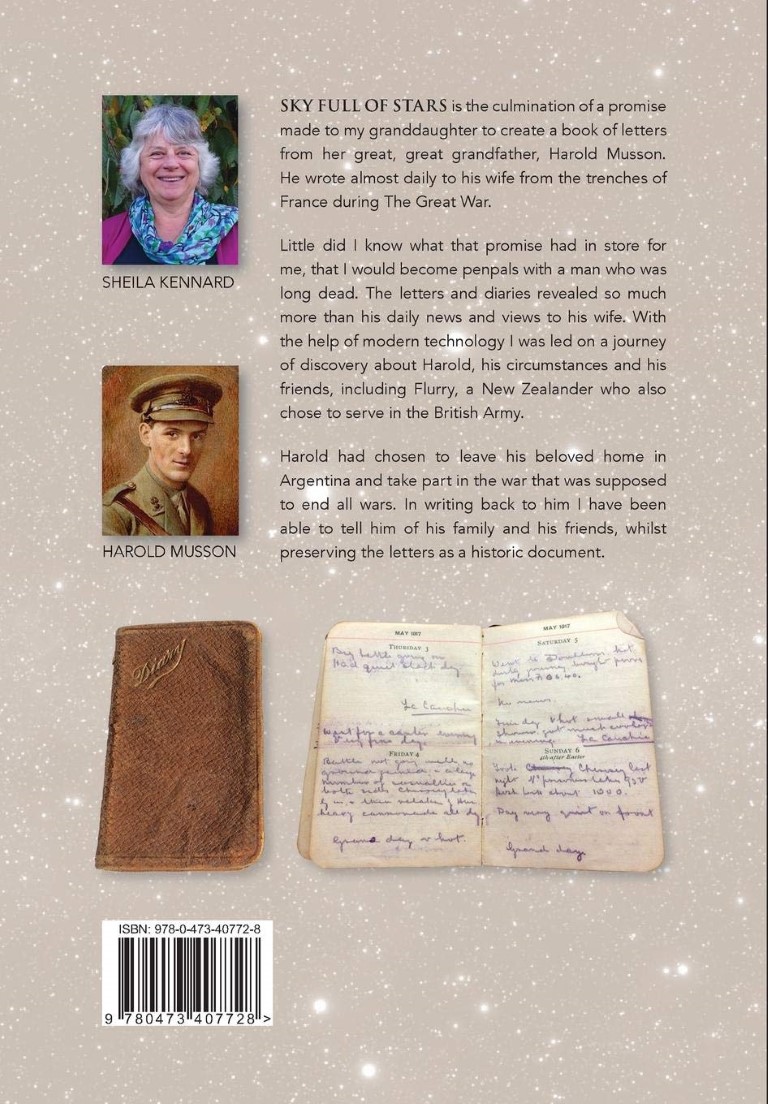 SKY FULL OF STARS is the culmination of a promise
made to my granddaughter to create a book of letters
from her great, great grandfather, Harold Musson.
He wrote almost daily to his wife from the trenches of
France during The Great War.
SHEILA KENNARD
Little did I know what that promise had in store for
me, that I would become penpals with a man who was
long dead. The letters and diaries revealed so much
more than his daily news and views to his wife. With
the help of modern technology I was led on a journey
of discovery about Harold, his circumstances and his
friends, including Flurry, a New Zealander who also
chose to serve in the British Army.
HAROLD MUSSON
Harold had chosen to leave his beloved home in
Argentina and take part in the war that was supposed
to end all wars. In writing back to him I have been
able to tell him of his family and his friends, whilst
preserving the letters as a historic document.
Diary
MAY 1917
THURSDAY 3
Big battle going on
Had quiet day
La Cauchie
FRIDAY 4
Battle not going well
heavy cannonade all day
Grand day hot.
MAY 1917
SATURDAY 5
Went to Doullens, hot
La Cauchie
SUNDAY 6
4th after Easter
Took Cherisy last
night
back about 1000.
Day very quiet on front
Grand day
ISBN: 978-0-473-40772-8
9 780473 407728 >